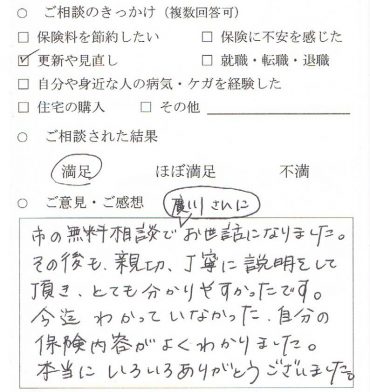 ○ ご相談のきっかけ（複数回答可）
□ 保険料を節約したい □ 保険に不安を感じた
☑ 更新や見直し □ 就職・転職・退職
□ 自分や身近な人の病気・ケガを経験した
□ 住宅の購入 □ その他
○ ご相談された結果
満足 ほぼ満足 不満
○ ご意見・ご感想 廣川さんに
市の無料相談でお世話になりました。
その後も、親切、丁寧に説明をして
頂き、とても分かりやすかったです。
今迄 わかっていなかった、自分の
保険内容がよくわかりました。
本当にいろいろありがとうございました。